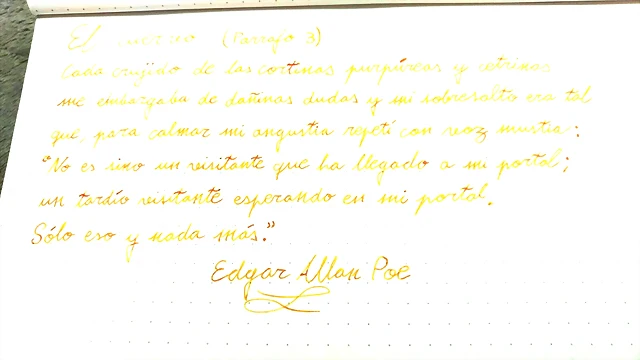 El cuervo (Párrafo 3)
Cada crujido de las cortinas purpúreas y cetrinas
me embargaba de dañinas dudas y mi sobresalto era tal
que, para calmar mi angustia repetí con voz mustia:
"No es sino un visitante que ha llegado a mi portal;
un tardío visitante esperando en mi portal.
Sólo eso y nada más."
Edgar Allan Poe